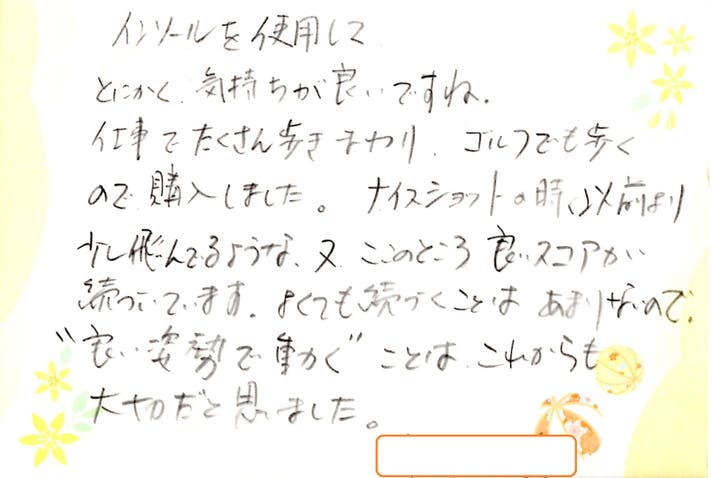 インソールを使用して
とにかく、気持ちが良いですね。
仕事でたくさん歩きまわり、ゴルフでも歩く
ので購入しました。ナイスショットの時、以前より
少し飛んでるような、又、ここのところ良いスコアが
続いています。よくても続づくことはあまりないので、
"良い姿勢で動く"ことは、これからも
大切だと思いました。